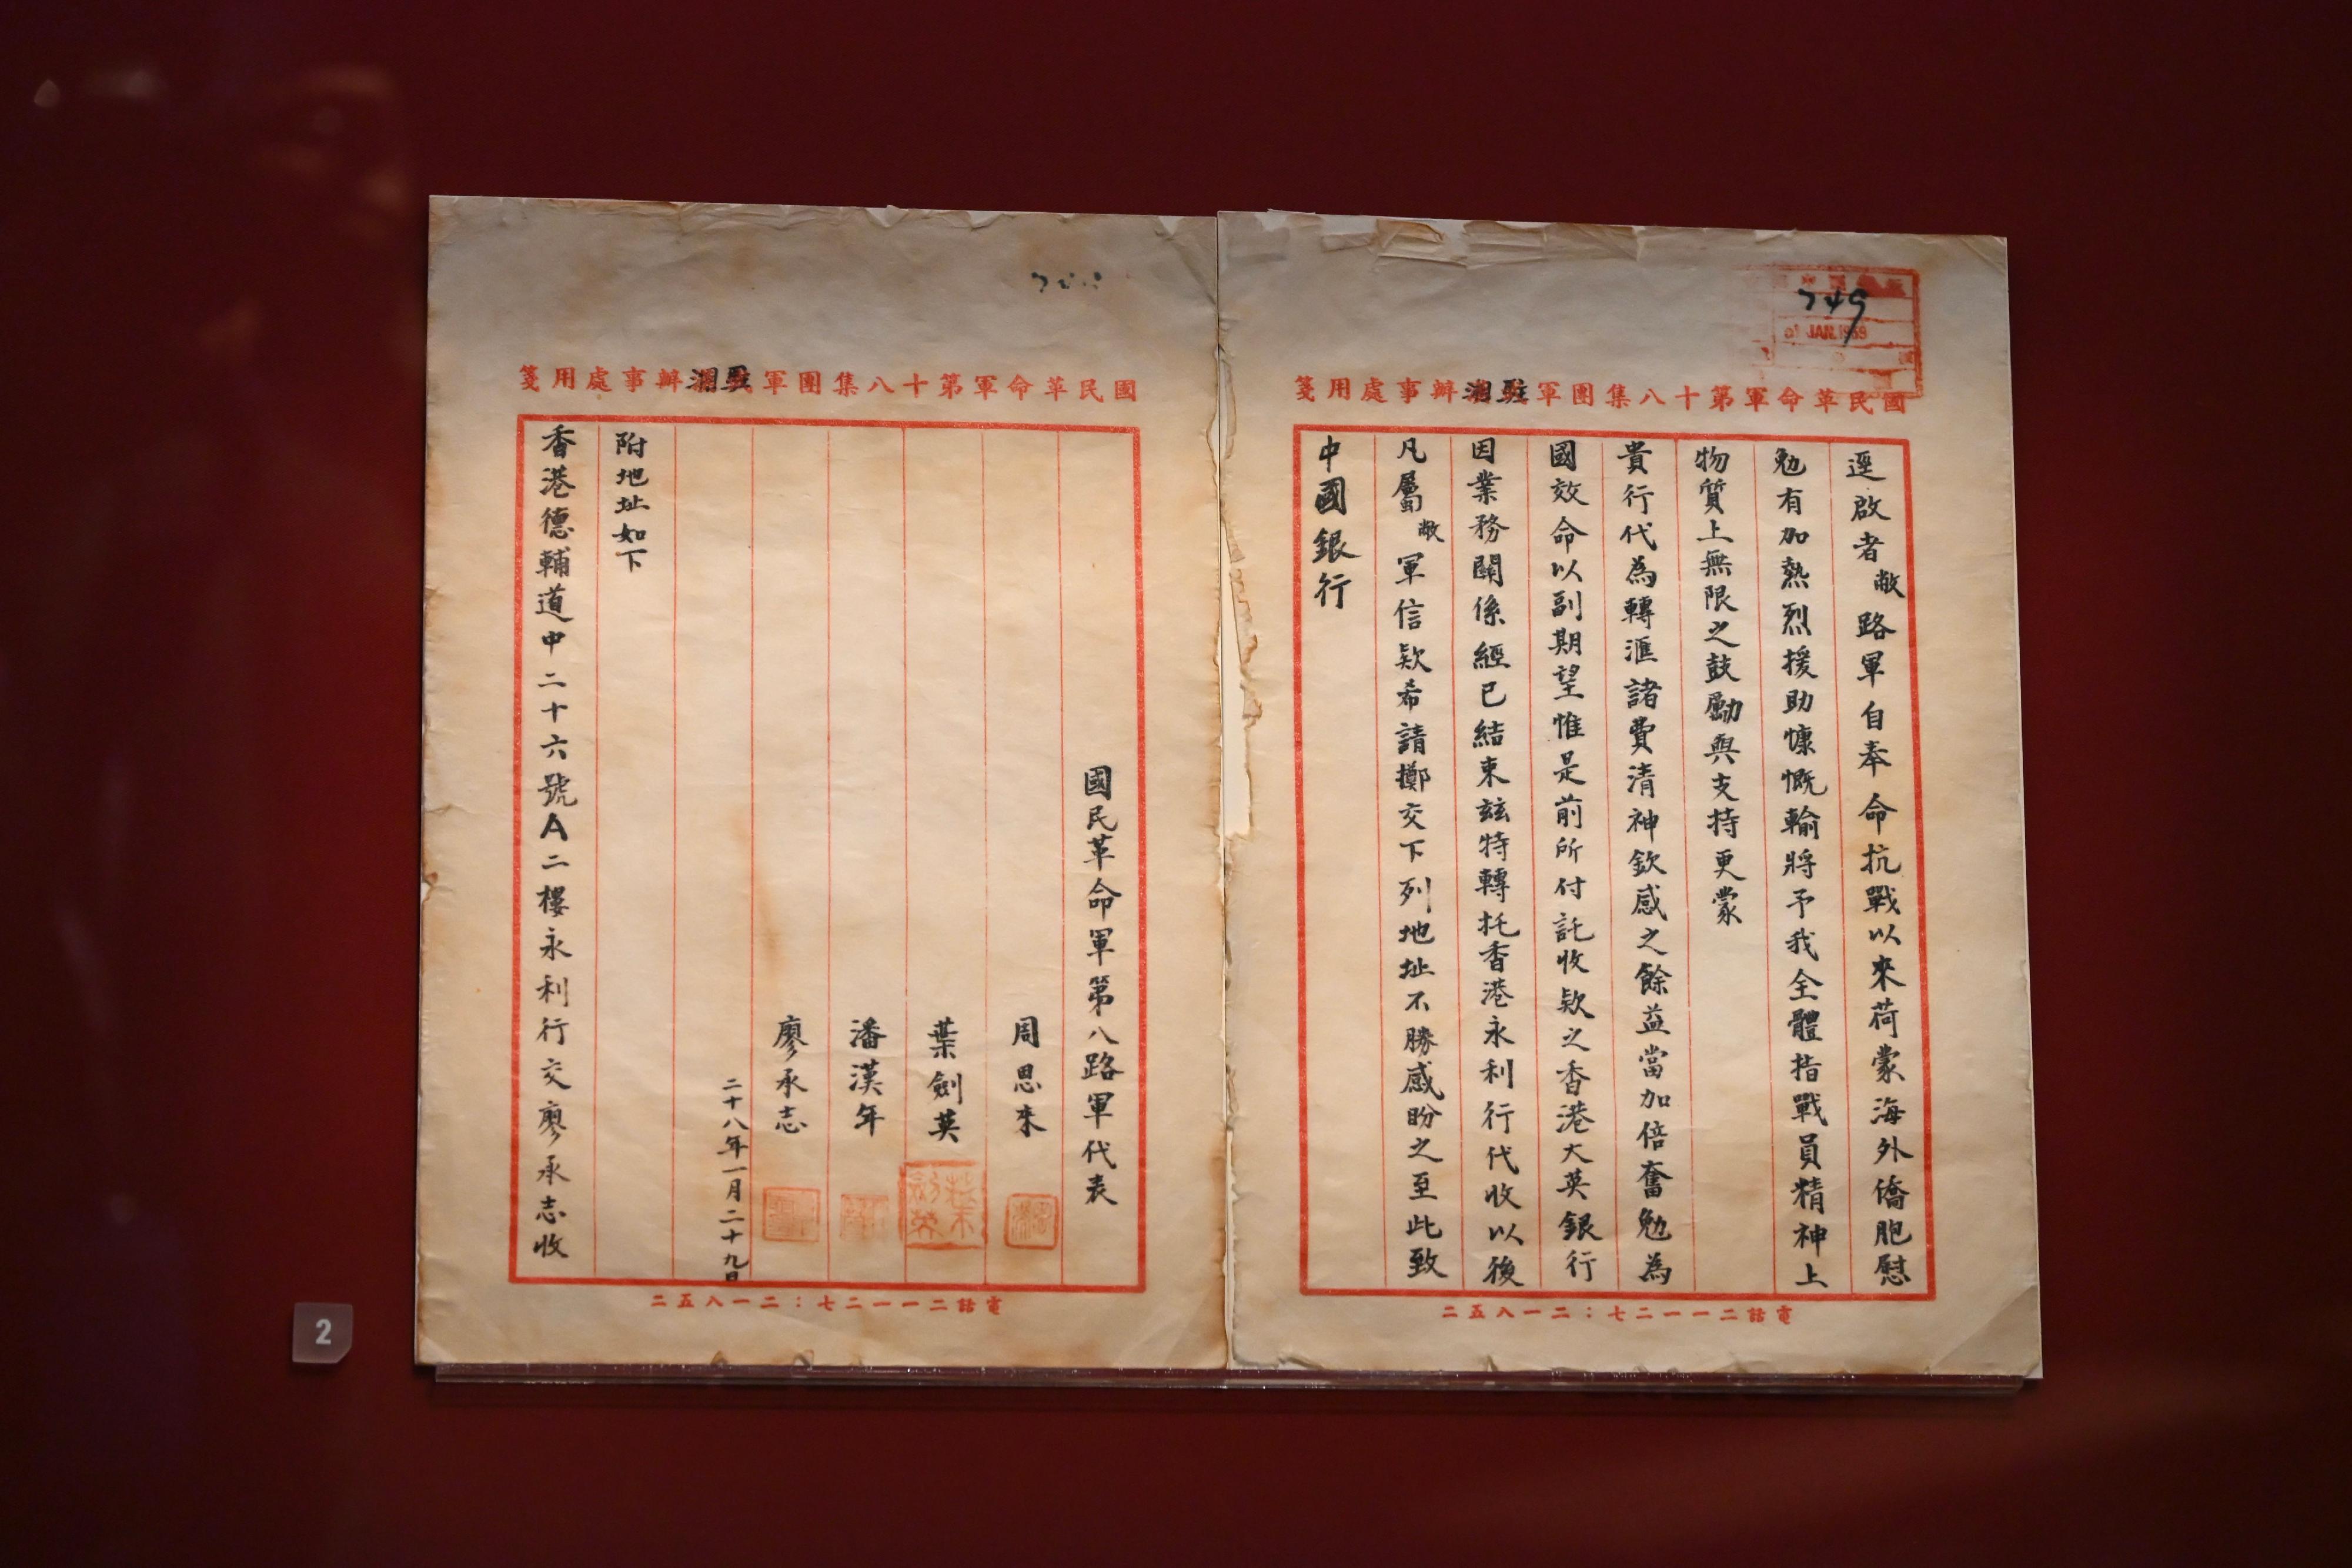 749
國民革命軍第十八集團軍駐湘辦事處用箋
逕啟者敝路軍自奉命抗戰以來荷蒙海外僑胞慰
勉有加熱烈援助慷慨輸將予我全體指戰員精神上
物質上無限之鼓勵與支持更蒙
貴行代為轉滙諸費清神欽感之餘益當加倍奮勉為
國效命以副期望惟是前所付託收欵之香港大英銀行
因業務關係經已結束茲特轉托香港永利行代收以後
凡屬敝軍信欵希請擲交下列地址不勝感盼之至此致
中國銀行
電話二一一二七：二一八五二
國民革命軍第十八集團軍駐湘辦事處用箋
國民革命軍第八路軍代表
周恩來
葉劍英
潘漢年
廖承志
二十八年一月二十九日
附地址如下
香港德輔道中二十六號A二樓永利行交廖承志收
電話二一一二七：二一八五二
2